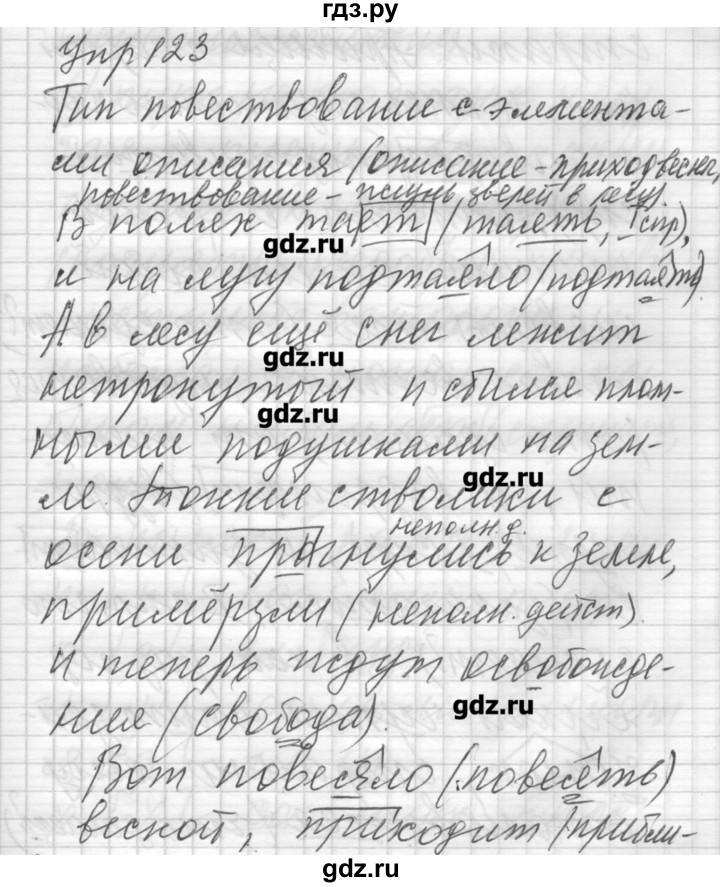 гдз.ру
Упр 123
Тип повествование с элемента-
ми описания (описание - приход весны,
повествование - жизнь зверей в лесу.
В полях тает (таять, I спр),
gdz.ru
и на лугу подтаяло (подтаять).
А в лесу ещё снег лежит
gdz.ru
нетронутый и сбился плот-
gdz.ru
ными подушками на зем-
gdz.ru
ле. Тонкие стволики с
неполн. д.
осени пригнулись к земле,
примёрзли (неполн. дейст).
и теперь ждут освобожде-
gdz.ru
ния (свобода).
Вот повеяло (повеять)
весной, приходит (прибли-
gdz.ru